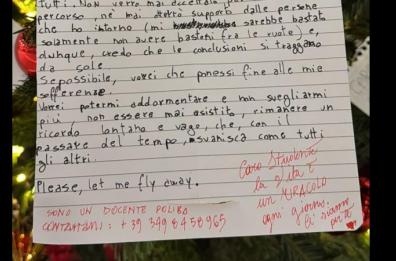 tutti. Non verrò mai accettato per
percorso, né mai avrò supporto dalle persone
che ho intorno (mi sarebbe bastato
solamente non avere bastoni fra le ruote) e,
dunque, credo che le conclusioni si traggano
da sole.
Se possibile, vorrei che ponessi fine alle mie
sofferenze.
Vorrei potermi addormentare e non svegliarmi
più, non essere mai esistito, rimanere un
ricordo lontano e vago, che, con il
passare del tempo, svanisca come tutti
gli altri.
Please, let me fly away.
SONO UN DOCENTE POLIBA
CONTATTAMI: +39 349 8458965
Caro Studente
la vita è
un MIRACOLO
ogni giorno.